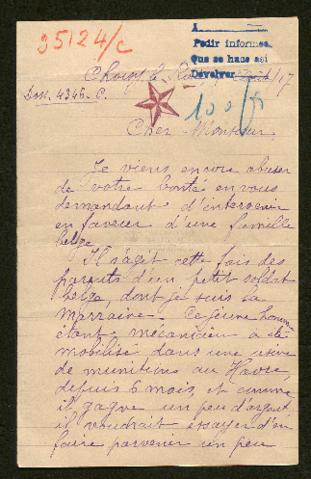 35124/C
A
Pedir informes
Que se hace asi
Devolver
Choisy le /17
Doss. 4346. C.
100
Cher Monsieur,
Je viens encore abuser
de votre bonté en vous
demandant d'intervenir
en faveur d'une famille
belge
Il s'agit cette fois des
parents d'un petit soldat
belge, dont je suis la
marraine. Ce jeune homme
étant mécanicien a été
mobilisé dans une usine
de munitions au Havre,
depuis 6 mois, et comme
il gagne un peu d'argent,
il voudrait essayer d'en
faire parvenir un peu